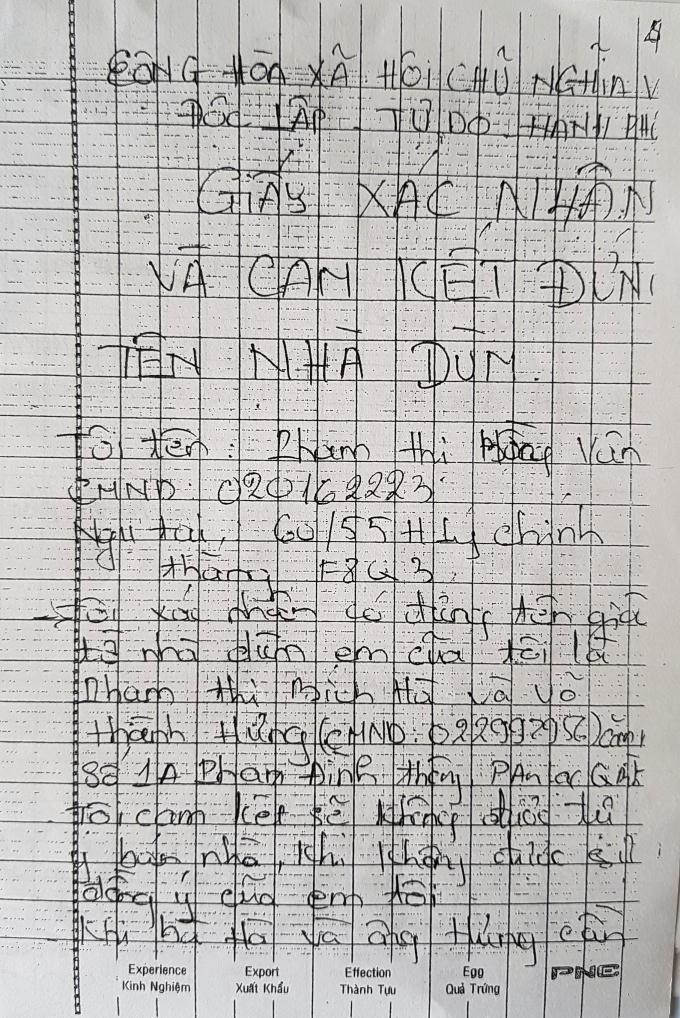 CỘNG HÒA XÃ HỘI CHỦ NGHĨA V
ĐỘC LẬP. TỰ DO. HẠNH PHÚ
GIẤY XÁC NHẬN
VÀ CAM KẾT ĐỨNG
TÊN NHÀ DÙM.
Tôi tên: Phạm thị Hồng Vân
CMND: 020162223
Ngụ tại, 60/55H Lý chính
thắng F8Q3.
Tôi xác nhận có đứng tên giấy
tờ nhà dùm em của tôi là
Phạm thị Bích Hà và Võ
thành Hưng (CMND: 022992956) căn
số 1A Phan Đình thông
Tôi cam kết sẽ không được tự
ý bán nhà, khi không được sự
đồng ý của em tôi
Khi bà Hà và ông Hưng cần
Experience Export Effection Egg PNC
Kinh Nghiệm Xuất Khẩu Thành Tựu Quả Trứng